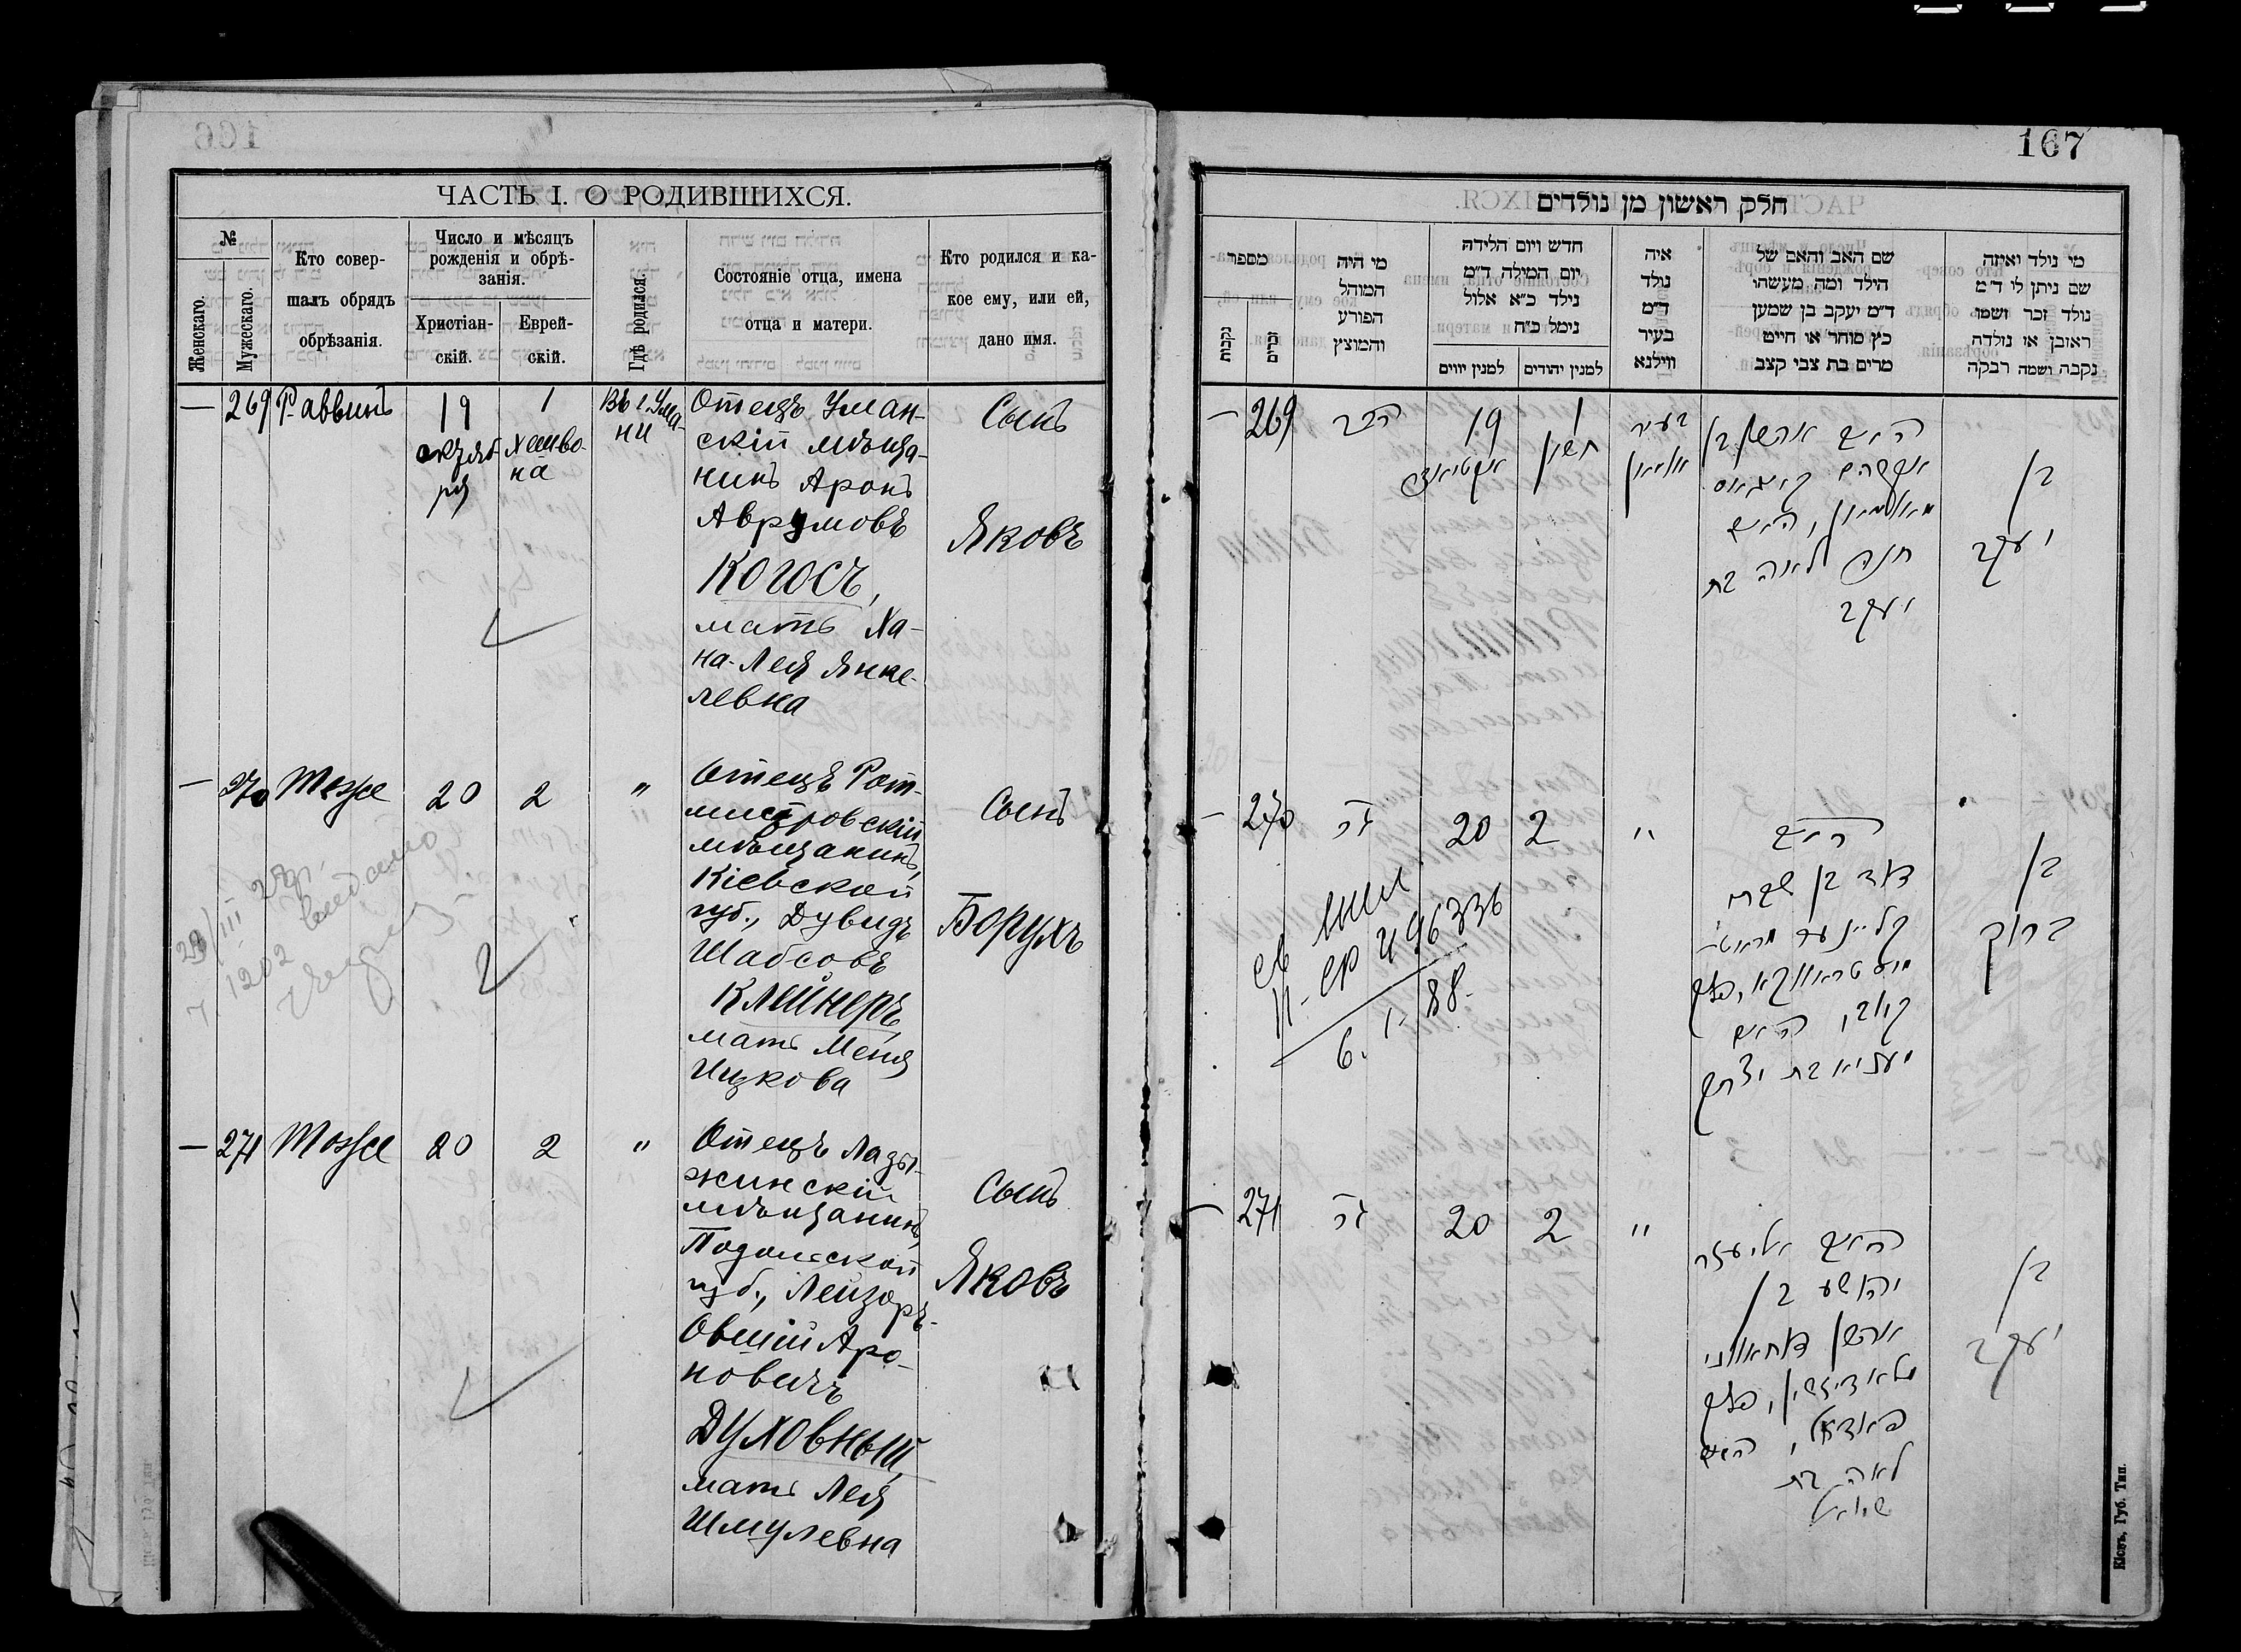 ЧАСТЬ I. О РОДИВШИХСЯ.
№
Женскаго.
Мужескаго.
Кто совер-
шалъ обрядъ
обрѣзанія.
Число и мѣсяцъ
рожденія и обрѣ-
занія.
Христіан-
скій.
Еврей-
скій.
Гдѣ родился.
Состояніе отца, имена
отца и матери.
Кто родился и ка-
кое ему, или ей,
дано имя.
— 269 Раввинъ
19
октяб-
ря
1
Хешво-
на
Въ г. Ума-
ни
Отецъ Уман-
скій мѣща-
нинъ Аронъ
Аврумовъ
Когосъ,
мать Ха-
на-Лея Янке-
левна
Сынъ
Яковъ
— 270 Мозсе 20 2 "
Отецъ Рот-
мистровскій
мѣщанинъ,
Кіевской
губ., Дувидъ
Шабсовъ
Клейнеръ,
мать Меня
Ицкова
Сынъ
Борухъ
— 271 Мозсе 20 2 "
Отецъ Лады-
жинскій
мѣщанинъ,
Подольской
губ., Лейзоръ-
Овшій Аро-
новичъ
Духовный,
мать Лея
Шмулевна
Сынъ
Яковъ
167
חלק ראשון מן נולדים
מספר
נקבות
זכרים
מי היה
המוהל
הפורע
והמוצץ
חדש ויום הלידה
יום המילה ד״מ
נילד כ״א אלול
נימל כ״ח
למנין יווים
למנין יהודים
איה
נולד
ד״מ
בעיר
ווילנא
שם האב והאם של
הילד ומה מעשהו
ד״מ יעקב בן שמען
כץ סוחר או חייט
מרים בת צבי קצב
מי נילד ואיזה
שם ניתן לו ד״מ
נולד זכר ושמו
ראובן או נולדה
נקבה ושמה רבקה
— 269 הרב
19
1
חשון
בעיר
אומאן
האב אהרן בן
אברהם
מאומאן, האם
חנה לאה בת
יעקב
בן
יעקב
— 270 20 2 "
האב
דוד בן שבתי
קליינער
האם
בת יצחק
בן
ברוך
6. 1- 88-
— 271 20 2 "
האב אליעזר
יהושע בן
אהרן
האם
לאה בת
שמואל
בן
יעקב
Кіевъ, Губ. Тип.